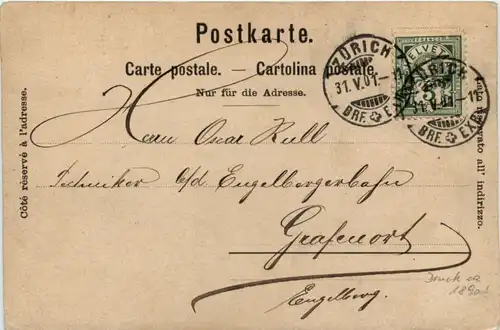 Postkarte.
Carte postale. — Cartolina postale.
Nur für die Adresse.
Côté réservé à l'adresse.
Lato riservato all' indirizzo.
HELVETIA
ZÜRICH
31.V.01.–11
BRF. EXP.
ZÜRICH
31.V.01.–11
BRF. EXP.
Herrn Oscar Rull
Techniker c/d Engelbergerbahn
Grafenort
Engelberg.
Druck ca
1890